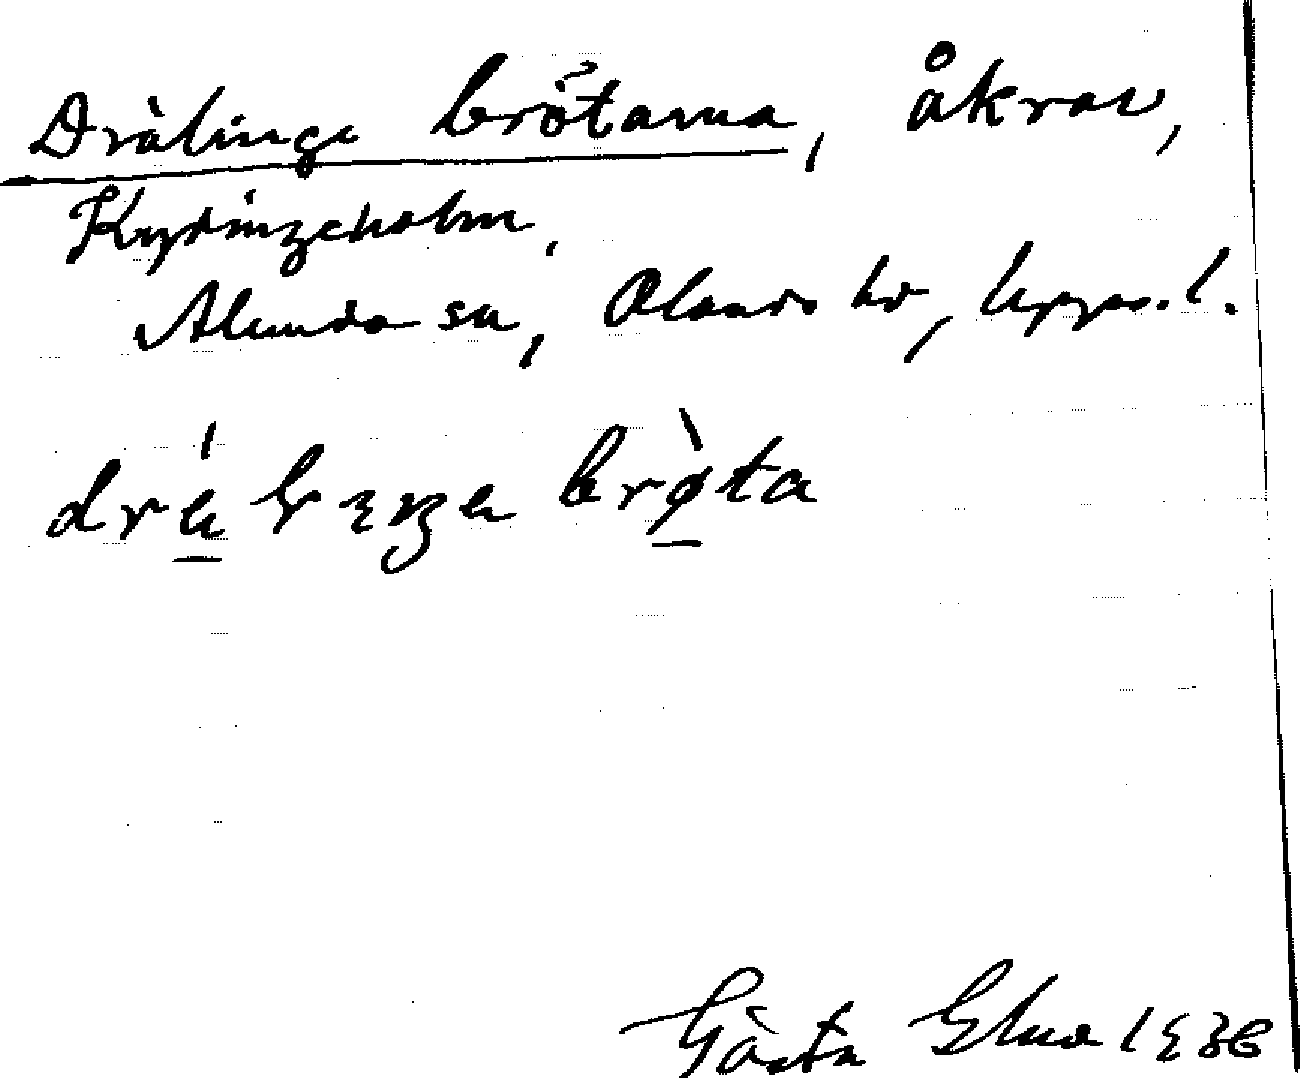 Drälinge brötarna, åkrar,
Kydingeholm,
Alunda sn, Olands hd, Upps. l.
brǿta
Gösta Elva 1936